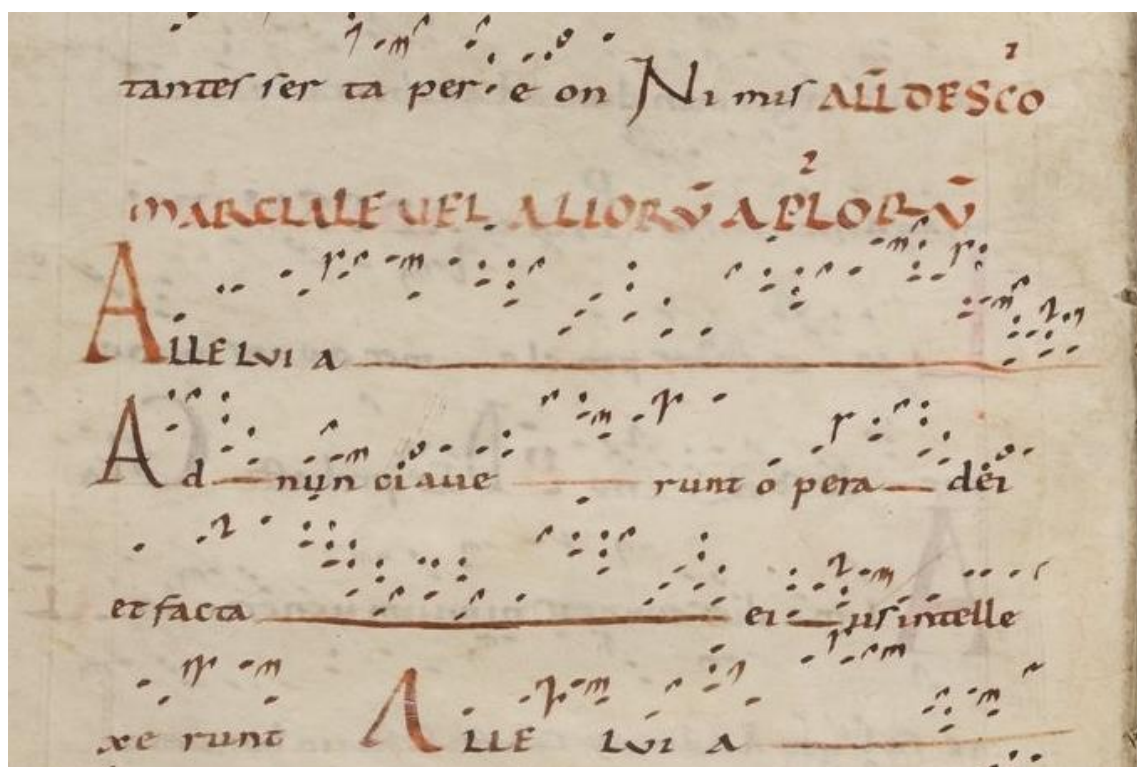 tantes ser ta per e on Ni mis ALL DE SCO
MARCIALE VEL ALIORU APLORU
ALLE LVI A
Ad nun ci aue runt o pera dei
et facta ei us intelle
xe runt ALLE LVI A